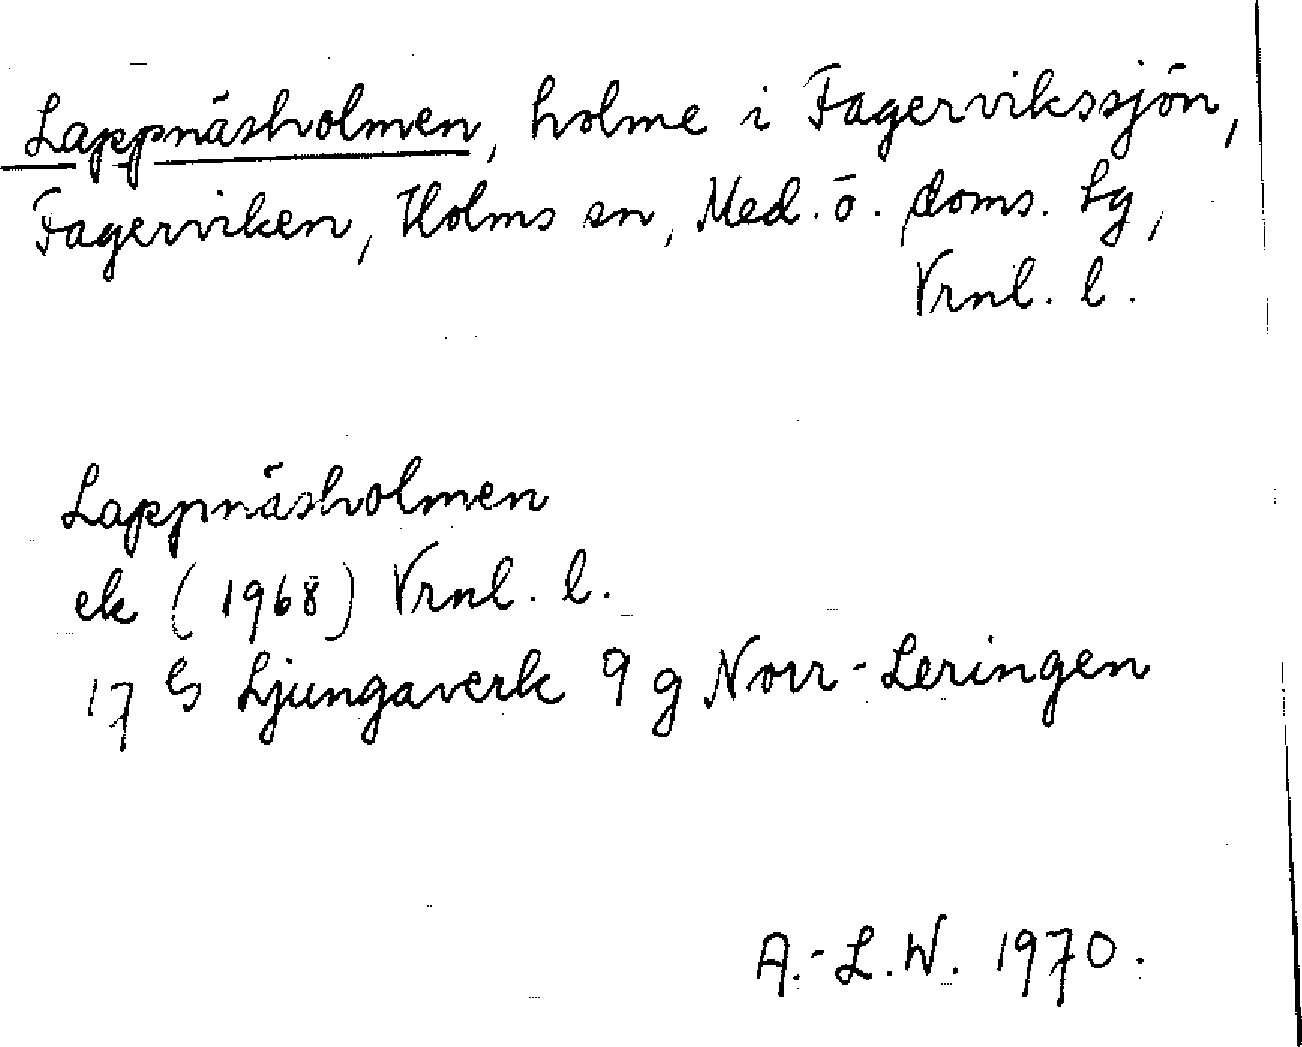 Lappnäsholmen, holme i Fagervikssjön,
Fagerviken, Holms sn, Med. ö. doms. lg,
Vrnl. l.
Lappnäsholmen
ek (1968) Vrnl. l.
17 G Ljungaverk 9 g Norr-Leringen
A.-L.W. 1970.